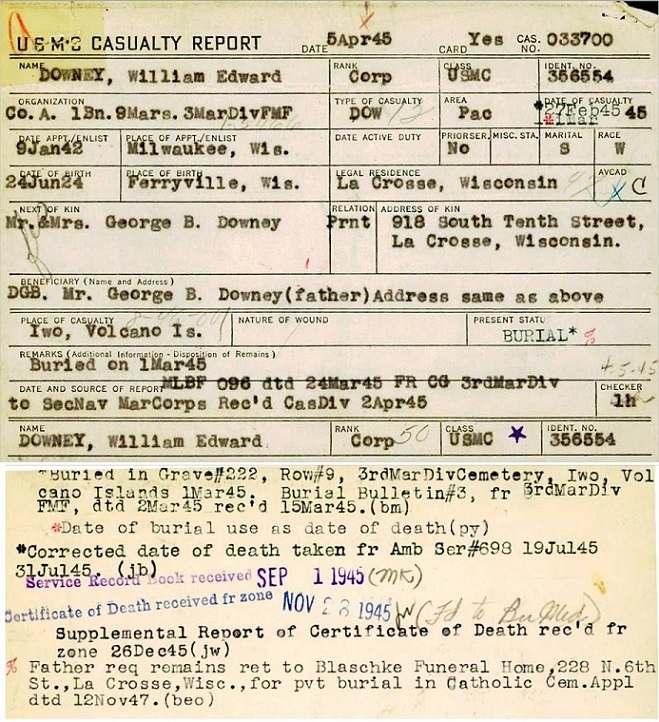 USMC CASUALTY REPORT DATE 5Apr45 CARD Yes CAS. NO. 033700
NAME DOWNEY, William Edward RANK Corp CLASS USMC IDENT. NO. 356554
ORGANIZATION Co. A. 1Bn.9Mars.3MarDivFMF TYPE OF CASUALTY DOW AREA Pac DATE OF CASUALTY *27Feb45 45
1Mar
DATE APPT./ENLIST 9Jan42 PLACE OF APPT./ENLIST Milwaukee, Wis. DATE ACTIVE DUTY PRIORSER. No MISC. STA. MARITAL S RACE W
DATE OF BIRTH 24Jun24 PLACE OF BIRTH Ferryville, Wis. LEGAL RESIDENCE La Crosse, Wisconsin AVCAD C
NEXT OF KIN Mr.&Mrs. George B. Downey RELATION Prnt ADDRESS OF KIN 918 South Tenth Street,
La Crosse, Wisconsin.
BENEFICIARY (Name and Address)
DGB. Mr. George B. Downey(father)Address same as above
PLACE OF CASUALTY Iwo, Volcano Is. NATURE OF WOUND PRESENT STATU BURIAL* %
REMARKS (Additional Information - Disposition of Remains) 4-3-45
Buried on 1Mar45
DATE AND SOURCE OF REPORT MLBF 096 dtd 24Mar45 FR CG 3rdMarDiv CHECKER
to SecNav MarCorps Rec'd CasDiv 2Apr45 lh
NAME DOWNEY, William Edward RANK Corp 50 CLASS USMC IDENT. NO. 356554
*Buried in Grave#222, Row#9, 3rdMarDivCemetery, Iwo, Vol
cano Islands 1Mar45. Burial Bulletin#3, fr 3rdMarDiv
FMF, dtd 2Mar45 rec'd 15Mar45.(bm)
*Date of burial use as date of death(py)
*Corrected date of death taken fr Amb Ser#698 19Jul45
31Jul45. (jb)
Service Record Book received SEP 1 1945 (MK)
Certificate of Death received fr zone NOV 28 1945 jw (Fd to BuMed)
Supplemental Report of Certificate of Death rec'd fr
zone 26Dec45(jw)
% Father req remains ret to Blaschke Funeral Home,228 N.6th
St.,La Crosse,Wisc.,for pvt burial in Catholic Cem.Appl
dtd 12Nov47.(beo)